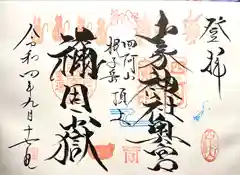 登拝
山家神社奥宮
四阿山
根子岳 頂上
禰固嶽
令和四年九月十七日